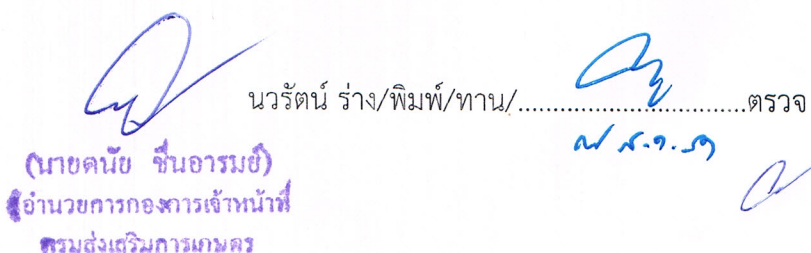 นวรัตน์ ร่าง/พิมพ์/ทาน/................................ตรวจ
(นายดนัย ชื่นอารมย์)
ผู้อำนวยการกองการเจ้าหน้าที่
กรมส่งเสริมการเกษตร